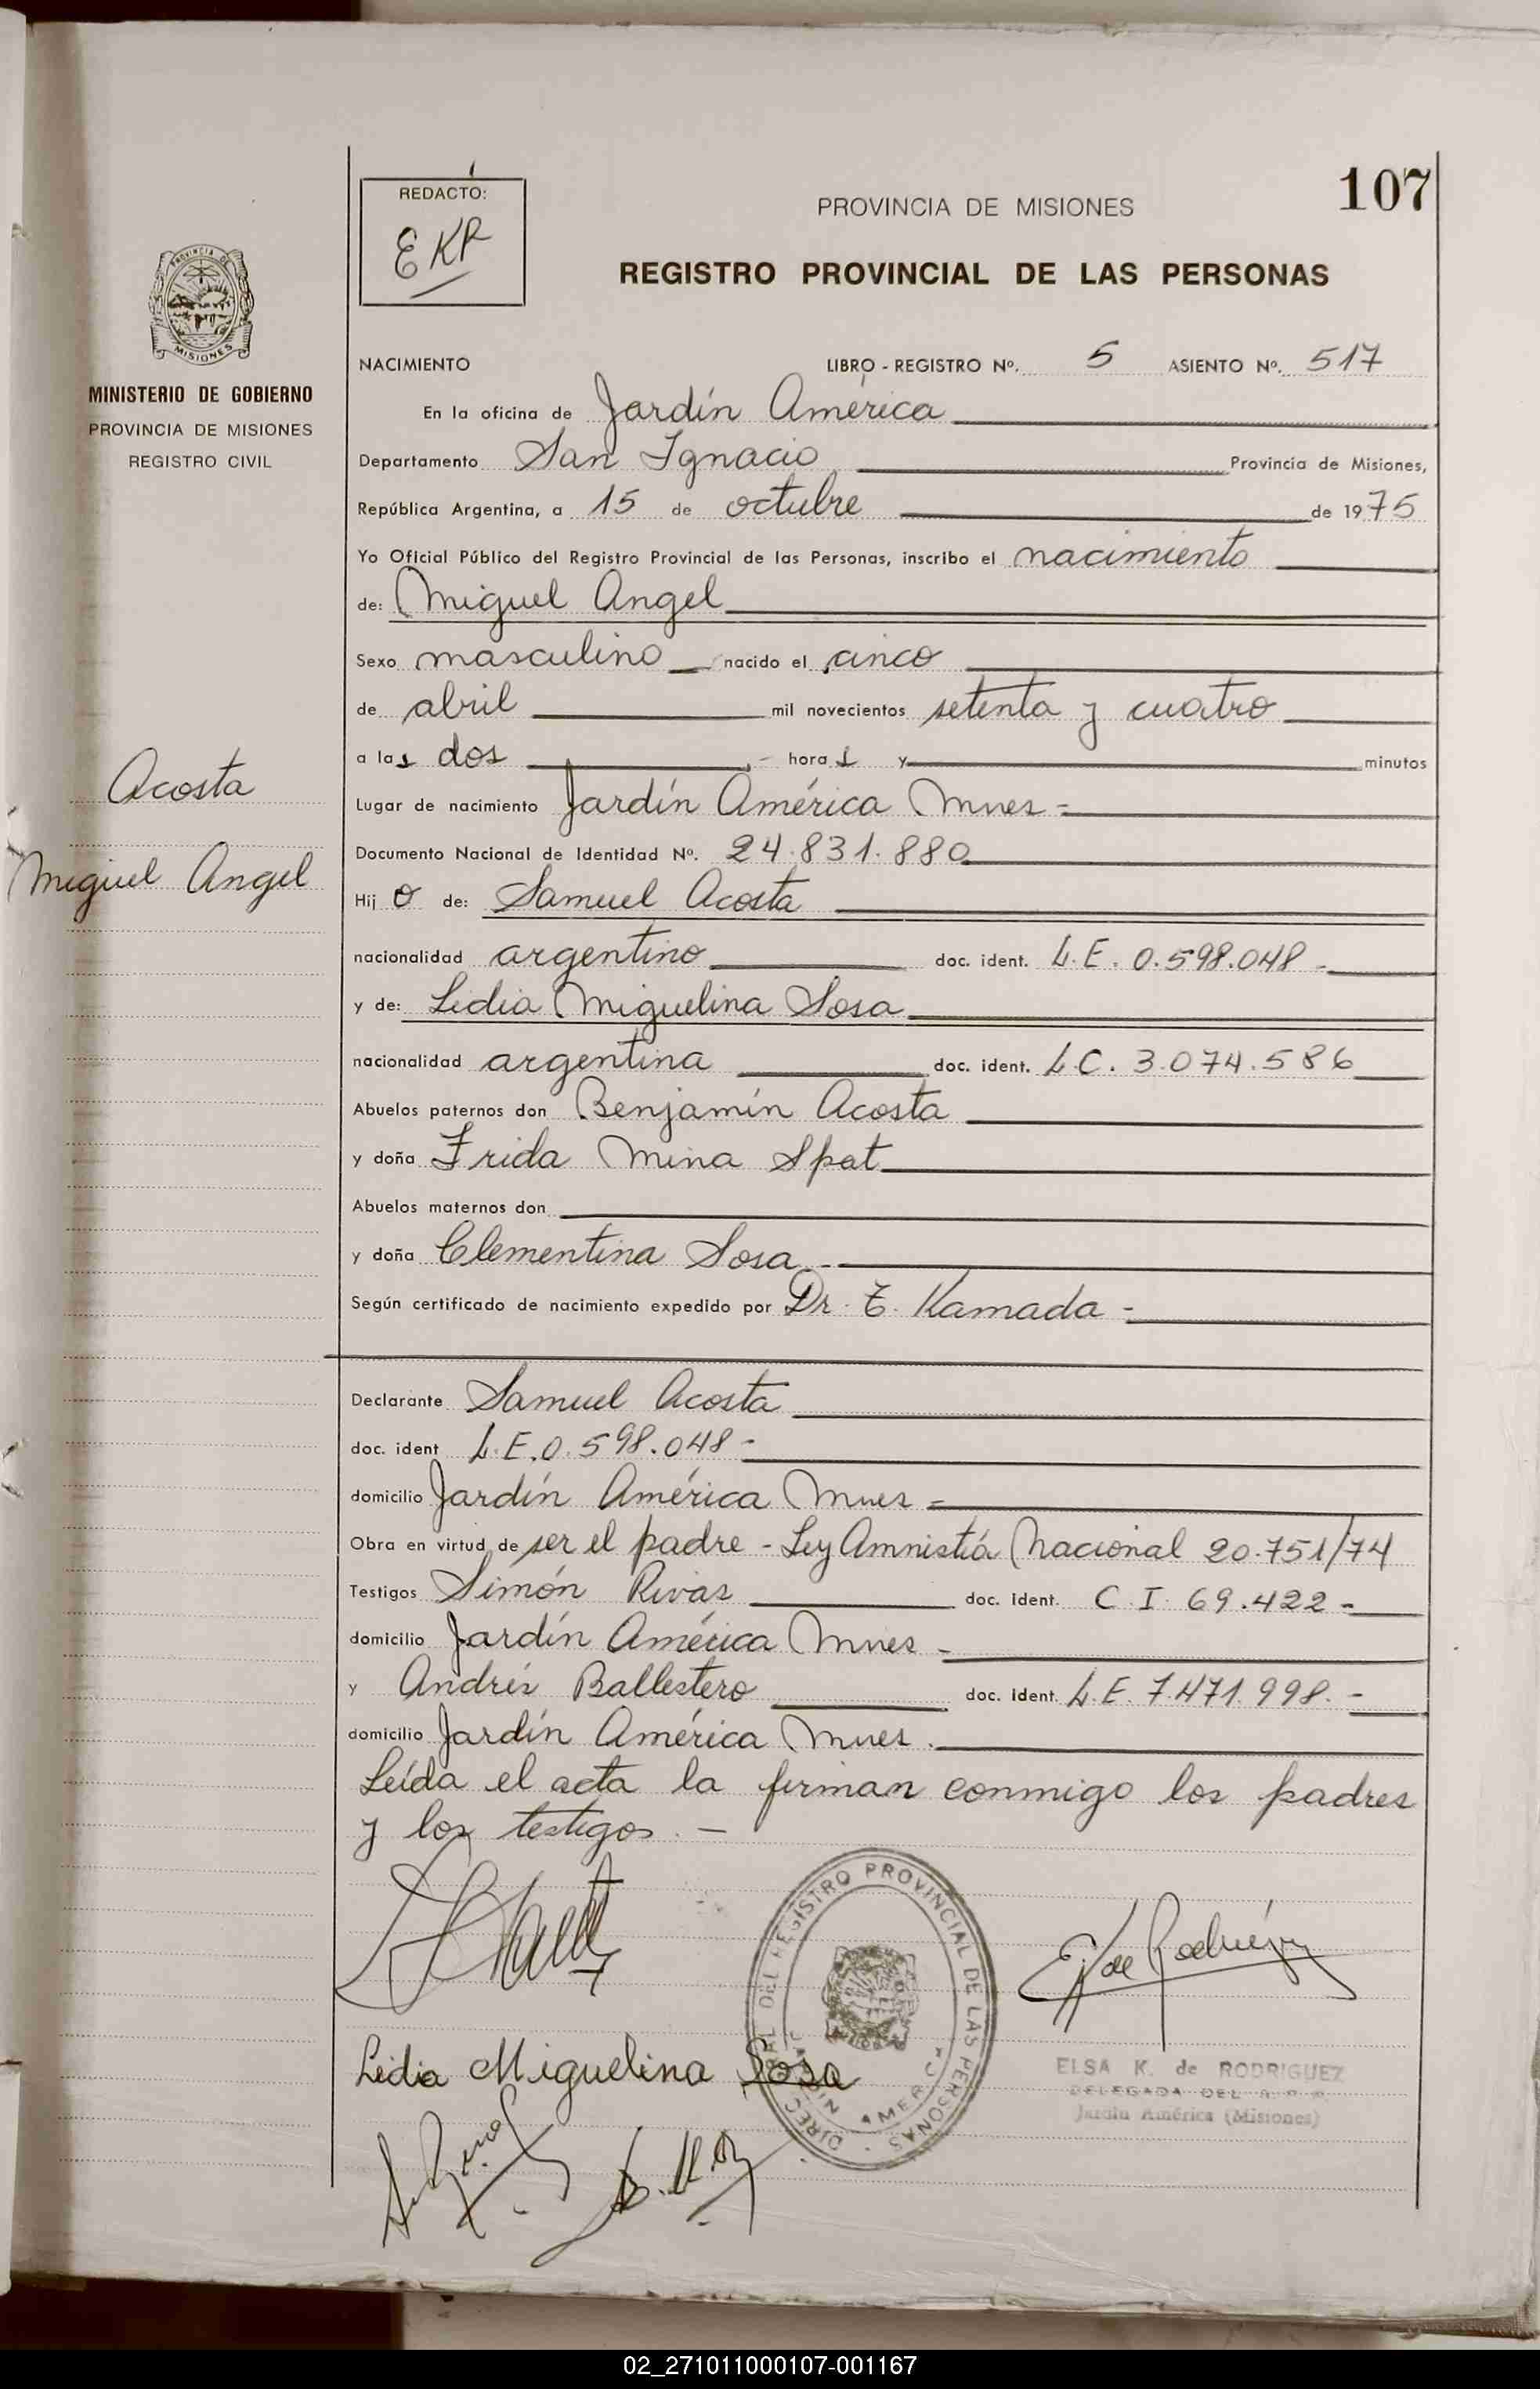 107
REDACTÓ:
EKR
PROVINCIA DE MISIONES
REGISTRO PROVINCIAL DE LAS PERSONAS
PROVINCIA DE
MISIONES
MINISTERIO DE GOBIERNO
PROVINCIA DE MISIONES
REGISTRO CIVIL
NACIMIENTO LIBRO - REGISTRO Nº. 5 ASIENTO Nº. 517
En la oficina de Jardín América
Departamento San Ignacio Provincia de Misiones,
República Argentina, a 15 de octubre de 1975
Yo Oficial Público del Registro Provincial de las Personas, inscribo el nacimiento
de: Miguel Angel
Sexo masculino nacido el cinco
de abril mil novecientos setenta y cuatro
a las dos horas y minutos
Acosta
Miguel Angel
Lugar de nacimiento Jardín América Mnes -
Documento Nacional de Identidad Nº. 24.831.880
Hijo de: Samuel Acosta
nacionalidad argentino doc. ident. L.E. 0.598.048 -
y de: Lidia Miguelina Sosa
nacionalidad argentina doc. ident. L.C. 3.074.586
Abuelos paternos don Benjamín Acosta
y doña Frida Mina Spat
Abuelos maternos don
y doña Clementina Sosa -
Según certificado de nacimiento expedido por Dr. T. Kamada -
Declarante Samuel Acosta
doc. ident L.E. 0.598.048 -
domicilio Jardín América Mnes -
Obra en virtud de ser el padre - Ley Amnistiá Nacional 20.751/74
Testigos Simón Rivas doc. Ident. C.I. 69.422 -
domicilio Jardín América Mnes -
y Andrés Ballestero doc. Ident. L.E. 7.471.998. -
domicilio Jardín América Mnes.
Leída el acta la firman conmigo los padres
y los testigos. -
E K de Rodríguez
Lidia Miguelina Sosa
DEL REGISTRO PROVINCIAL DE LAS PERSONAS
JARDIN AMERICA
ELSA K. de RODRIGUEZ
DELEGADA DEL R. P. P.
Jardín América (Misiones)
02_271011000107-001167